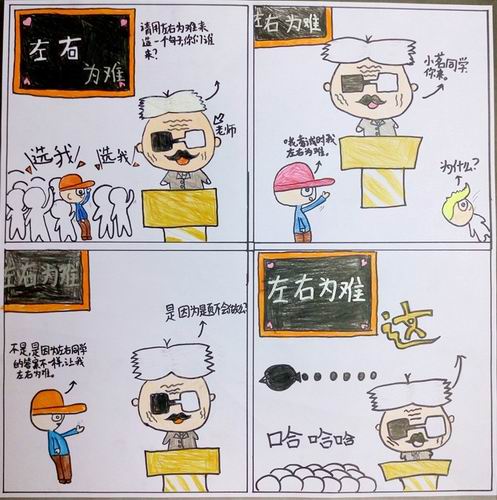 左右
为难
请用左右为难来
造一个句子,你们谁
来?
老师
选我
选我
左右为难
小茗同学
你来。
考试时我
左右为难。
为什么?
左右为难
是因为题不会做么?
不是,是因为左右同学
的答案不一样,让我
左右为难。
左右为难
这
哈哈哈